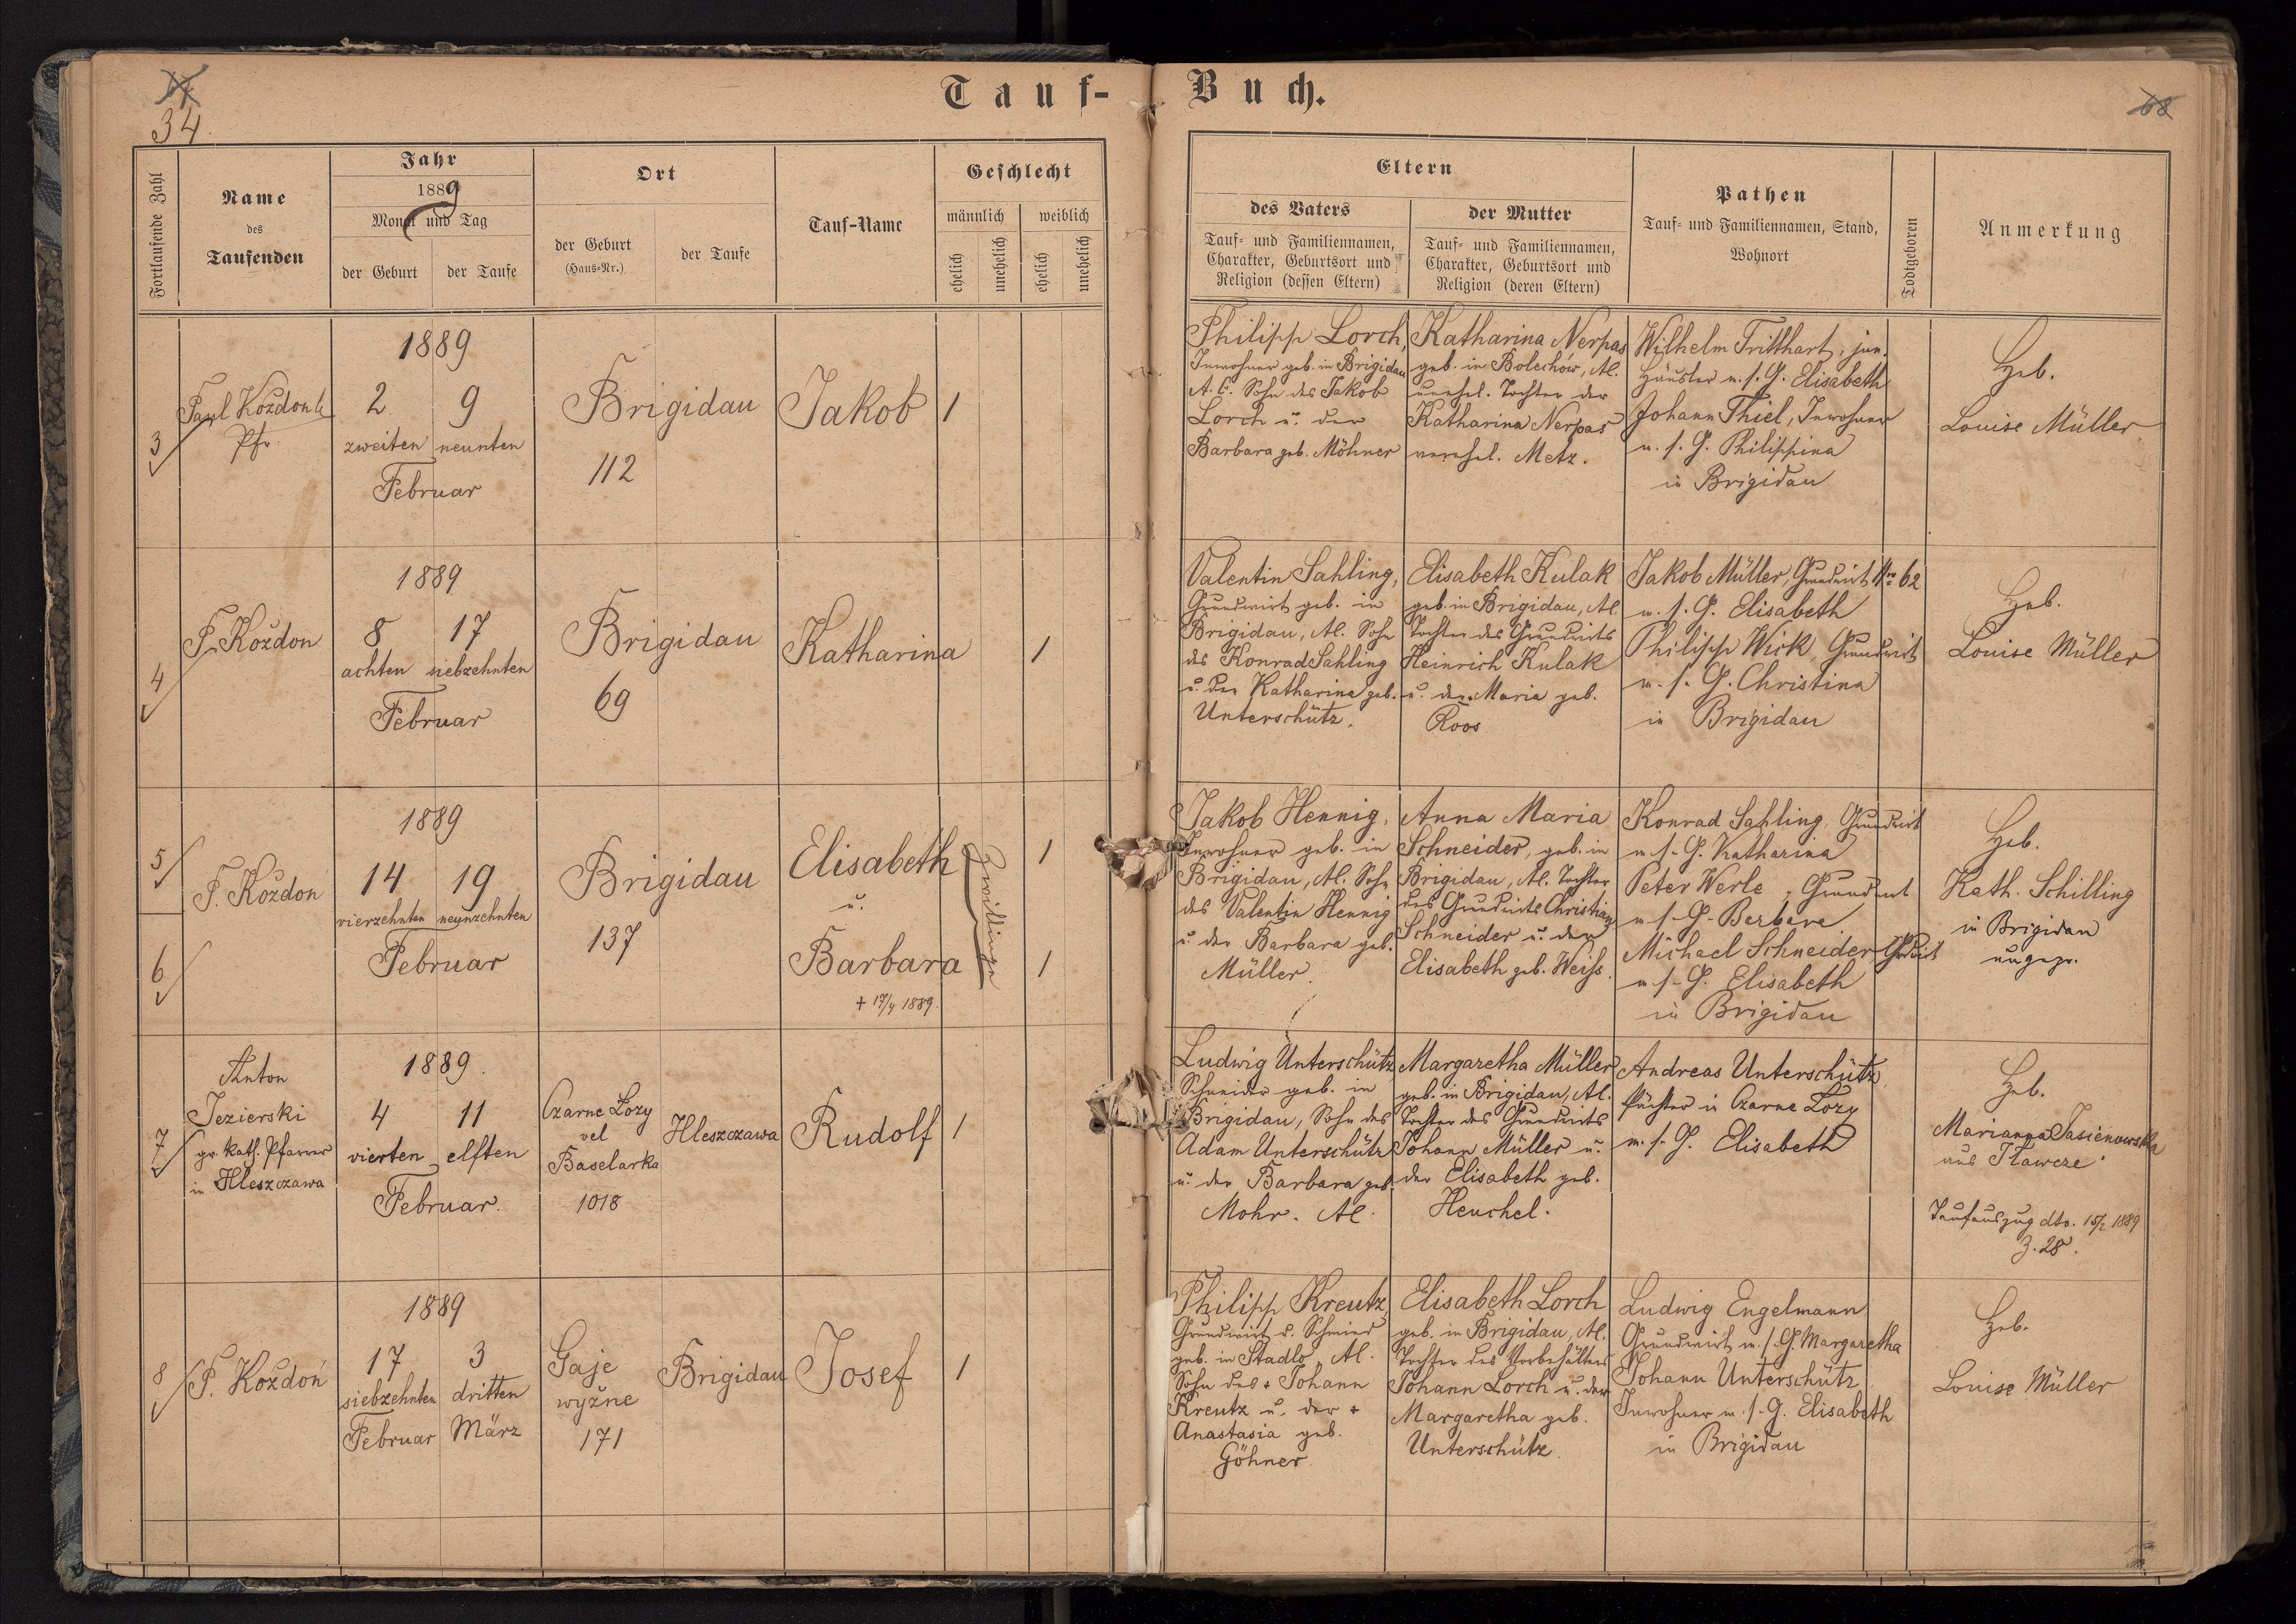 34
68
Tauf-Buch.
Fortlaufende Zahl
Name
des
Taufenden
Jahr
1889
Monat und Tag
der Geburt
der Taufe
Ort
der Geburt
(Haus-Nr.)
der Taufe
Tauf-Name
Geschlecht
männlich
weiblich
ehelich
unehelich
ehelich
unehelich
Eltern
des Vaters
Tauf- und Familiennamen,
Charakter, Geburtsort und
Religion (dessen Eltern)
der Mutter
Tauf- und Familiennamen,
Charakter, Geburtsort und
Religion (deren Eltern)
Pathen
Tauf- und Familiennamen, Stand,
Wohnort
Todtgeboren
Anmerkung
3
Paul Kozdoń
Pfr.
1889
2 9
zweiten neunten
Februar
Brigidau
112
Jakob
1
Philipp Lorch,
Inwohner geb. in Brigidau
A. C. Sohn des Jakob
Lorch u. der
Barbara geb. Möhner
Katharina Nerpas
geb. in Bolechów, AC.
unehel. Tochter der
Katharina Nerpas
verehel. Metz.
Wilhelm Tritthart, jun.
Häusler u. s. G. Elisabeth
Johann Thiel, Inwohner
u. s. G. Philippina
in Brigidau
Heb.
Louise Müller
4
P. Kozdoń
1889
8 17
achten siebzehnten
Februar
Brigidau
69
Katharina
1
Valentin Sahling,
Grundwirt geb. in
Brigidau, AC. Sohn
des Konrad Sahling
u. der Katharina geb.
Unterschütz.
Elisabeth Kulak
geb. in Brigidau, AC
Tochter des Grundwirts
Heinrich Kulak
u. der Maria geb.
Roos
Jakob Müller, Grundwirt Nro 62
u. s. G. Elisabeth
Philipp Wick, Grundwirt
u. s. G. Christina
in Brigidau
Heb.
Louise Müller
5
6
P. Kozdoń
1889
14 19
vierzehnten neunzehnten
Februar
Brigidau
137
Elisabeth
u.
Barbara
+ 17/4 1889.
Zwillinge
1
1
Jakob Hennig,
Inwohner geb. in
Brigidau, AC. Sohn
des Valentin Hennig
u. der Barbara geb.
Müller.
Anna Maria
Schneider, geb. in
Brigidau, AC. Tochter
des Grundwirts Christian
Schneider u. der
Elisabeth geb. Weiss.
Konrad Sahling, Grundwirt
u. s. G. Katharina
Peter Werle, Grundwirt
u. s. G. Barbara
Michael Schneider Grdwirt
u. s. G. Elisabeth
in Brigidau
Heb.
Kath. Schilling
in Brigidau
ungepr.
7
Anton
Jezierski
gr. kath. Pfarrer
in Hleszczawa
1889.
4 11
vierten elften
Februar.
Czarne Lozy
vel
Baselarka
1018
Hleszczawa
Rudolf
1
Ludwig Unterschütz
Schneider geb. in
Brigidau, Sohn des
Adam Unterschütz
u. der Barbara geb.
Mohr. AC.
Margaretha Müller
geb. in Brigidau, AC.
Tochter des Grundwirts
Johann Müller u.
der Elisabeth geb.
Heuchel.
Andreas Unterschütz
Pächter in Czarne Lozy
u. s. G. Elisabeth
Heb.
Marianna Jasienowska
aus Tławcze
Taufauszug dto. 15/2 1889
Z. 28.
8
P. Kozdoń
1889
17 3
siebzehnten dritten
Februar März
Gaje
wyżne
171
Brigidau
Josef
1
Philipp Kreutz
Grundwirt u. Schmied
geb. in Stadlo, AC.
Sohn des + Johann
Kreutz u. der +
Anastasia geb.
Göhner.
Elisabeth Lorch
geb. in Brigidau, AC.
Tochter des Vorbehälters
Johann Lorch u. der
Margaretha geb.
Unterschütz
Ludwig Engelmann
Grundwirt u. s. G. Margaretha
Johann Unterschütz
Inwohner u. s. G. Elisabeth
in Brigidau
Heb.
Louise Müller